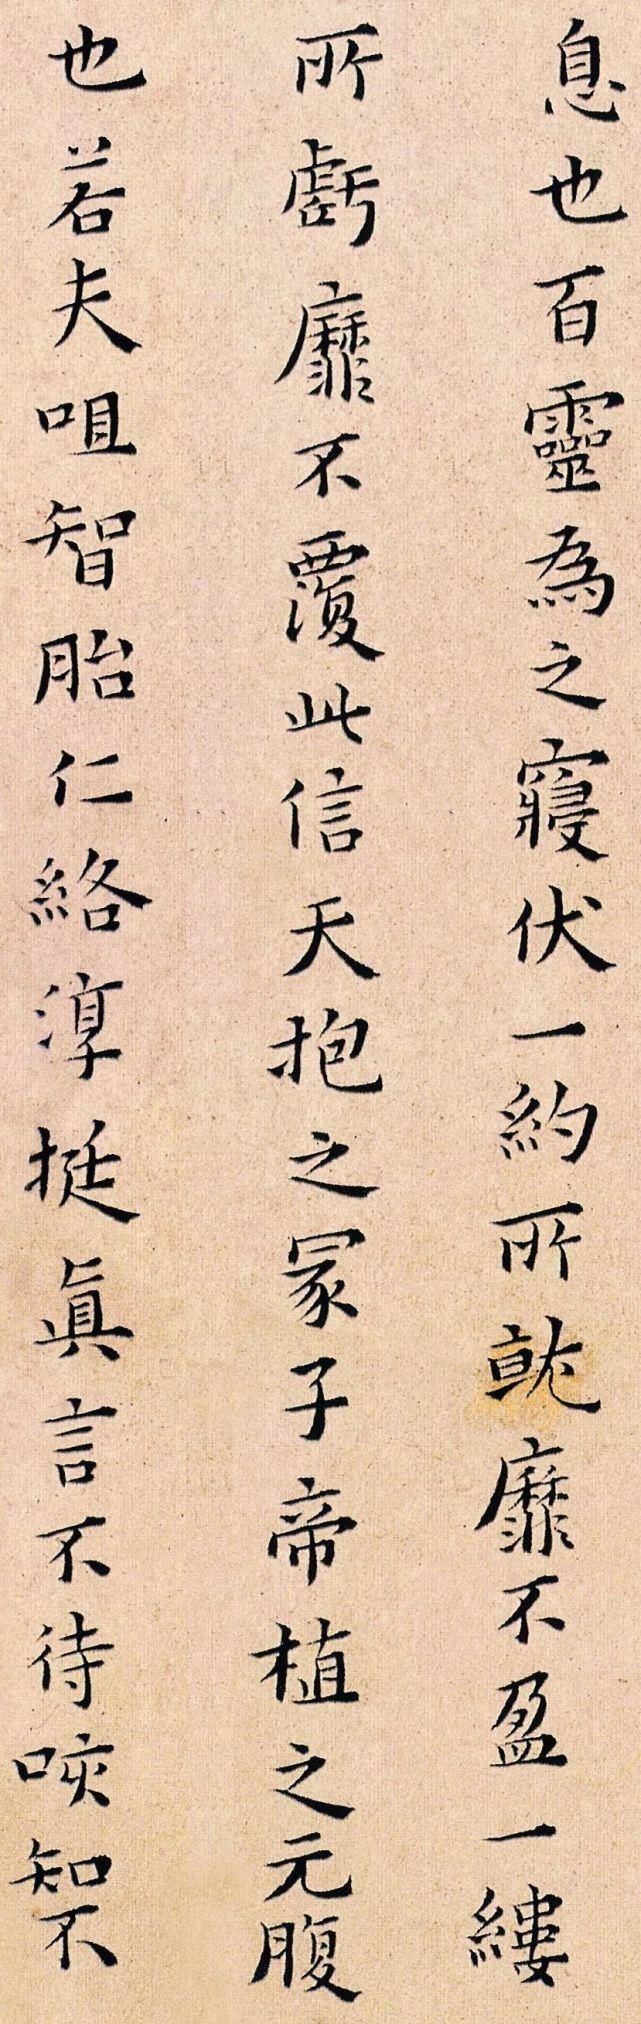 息也百靈為之寢伏一約所就靡不盈一縷
所虧靡不覆此信天抱之冢子帝植之元腹
也若夫咀智胎仁絡淳挺真言不待咳知不